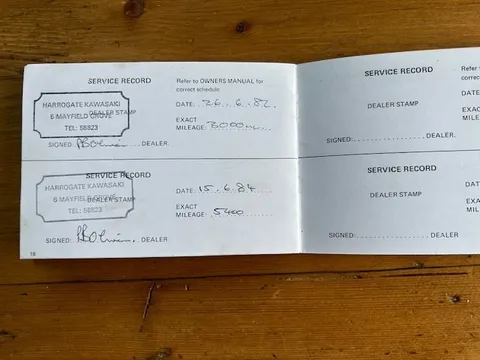 SERVICE RECORD
HARROGATE KAWASAKI
6 MAYFIELD GROVE
DEALER STAMP
TEL: 58823
SIGNED: DEALER.
Refer to OWNERS MANUAL for
correct schedule.
DATE: 26.6.82.
EXACT
MILEAGE: 3000
SERVICE RECORD
HARROGATE KAWASAKI
6 MAYFIELD GROVE
DEALER STAMP
TEL: 58823
SIGNED: DEALER
DATE: 15.6.84
EXACT
MILEAGE: 5400
18
SERVICE RECORD
DEALER STAMP
SIGNED: DEALER
Refer to
correct
DATE:
EXACT
MILEAGE
SERVICE RECORD
DEALER STAMP
SIGNED: DEALER
DATE:
EXACT
MILEAGE